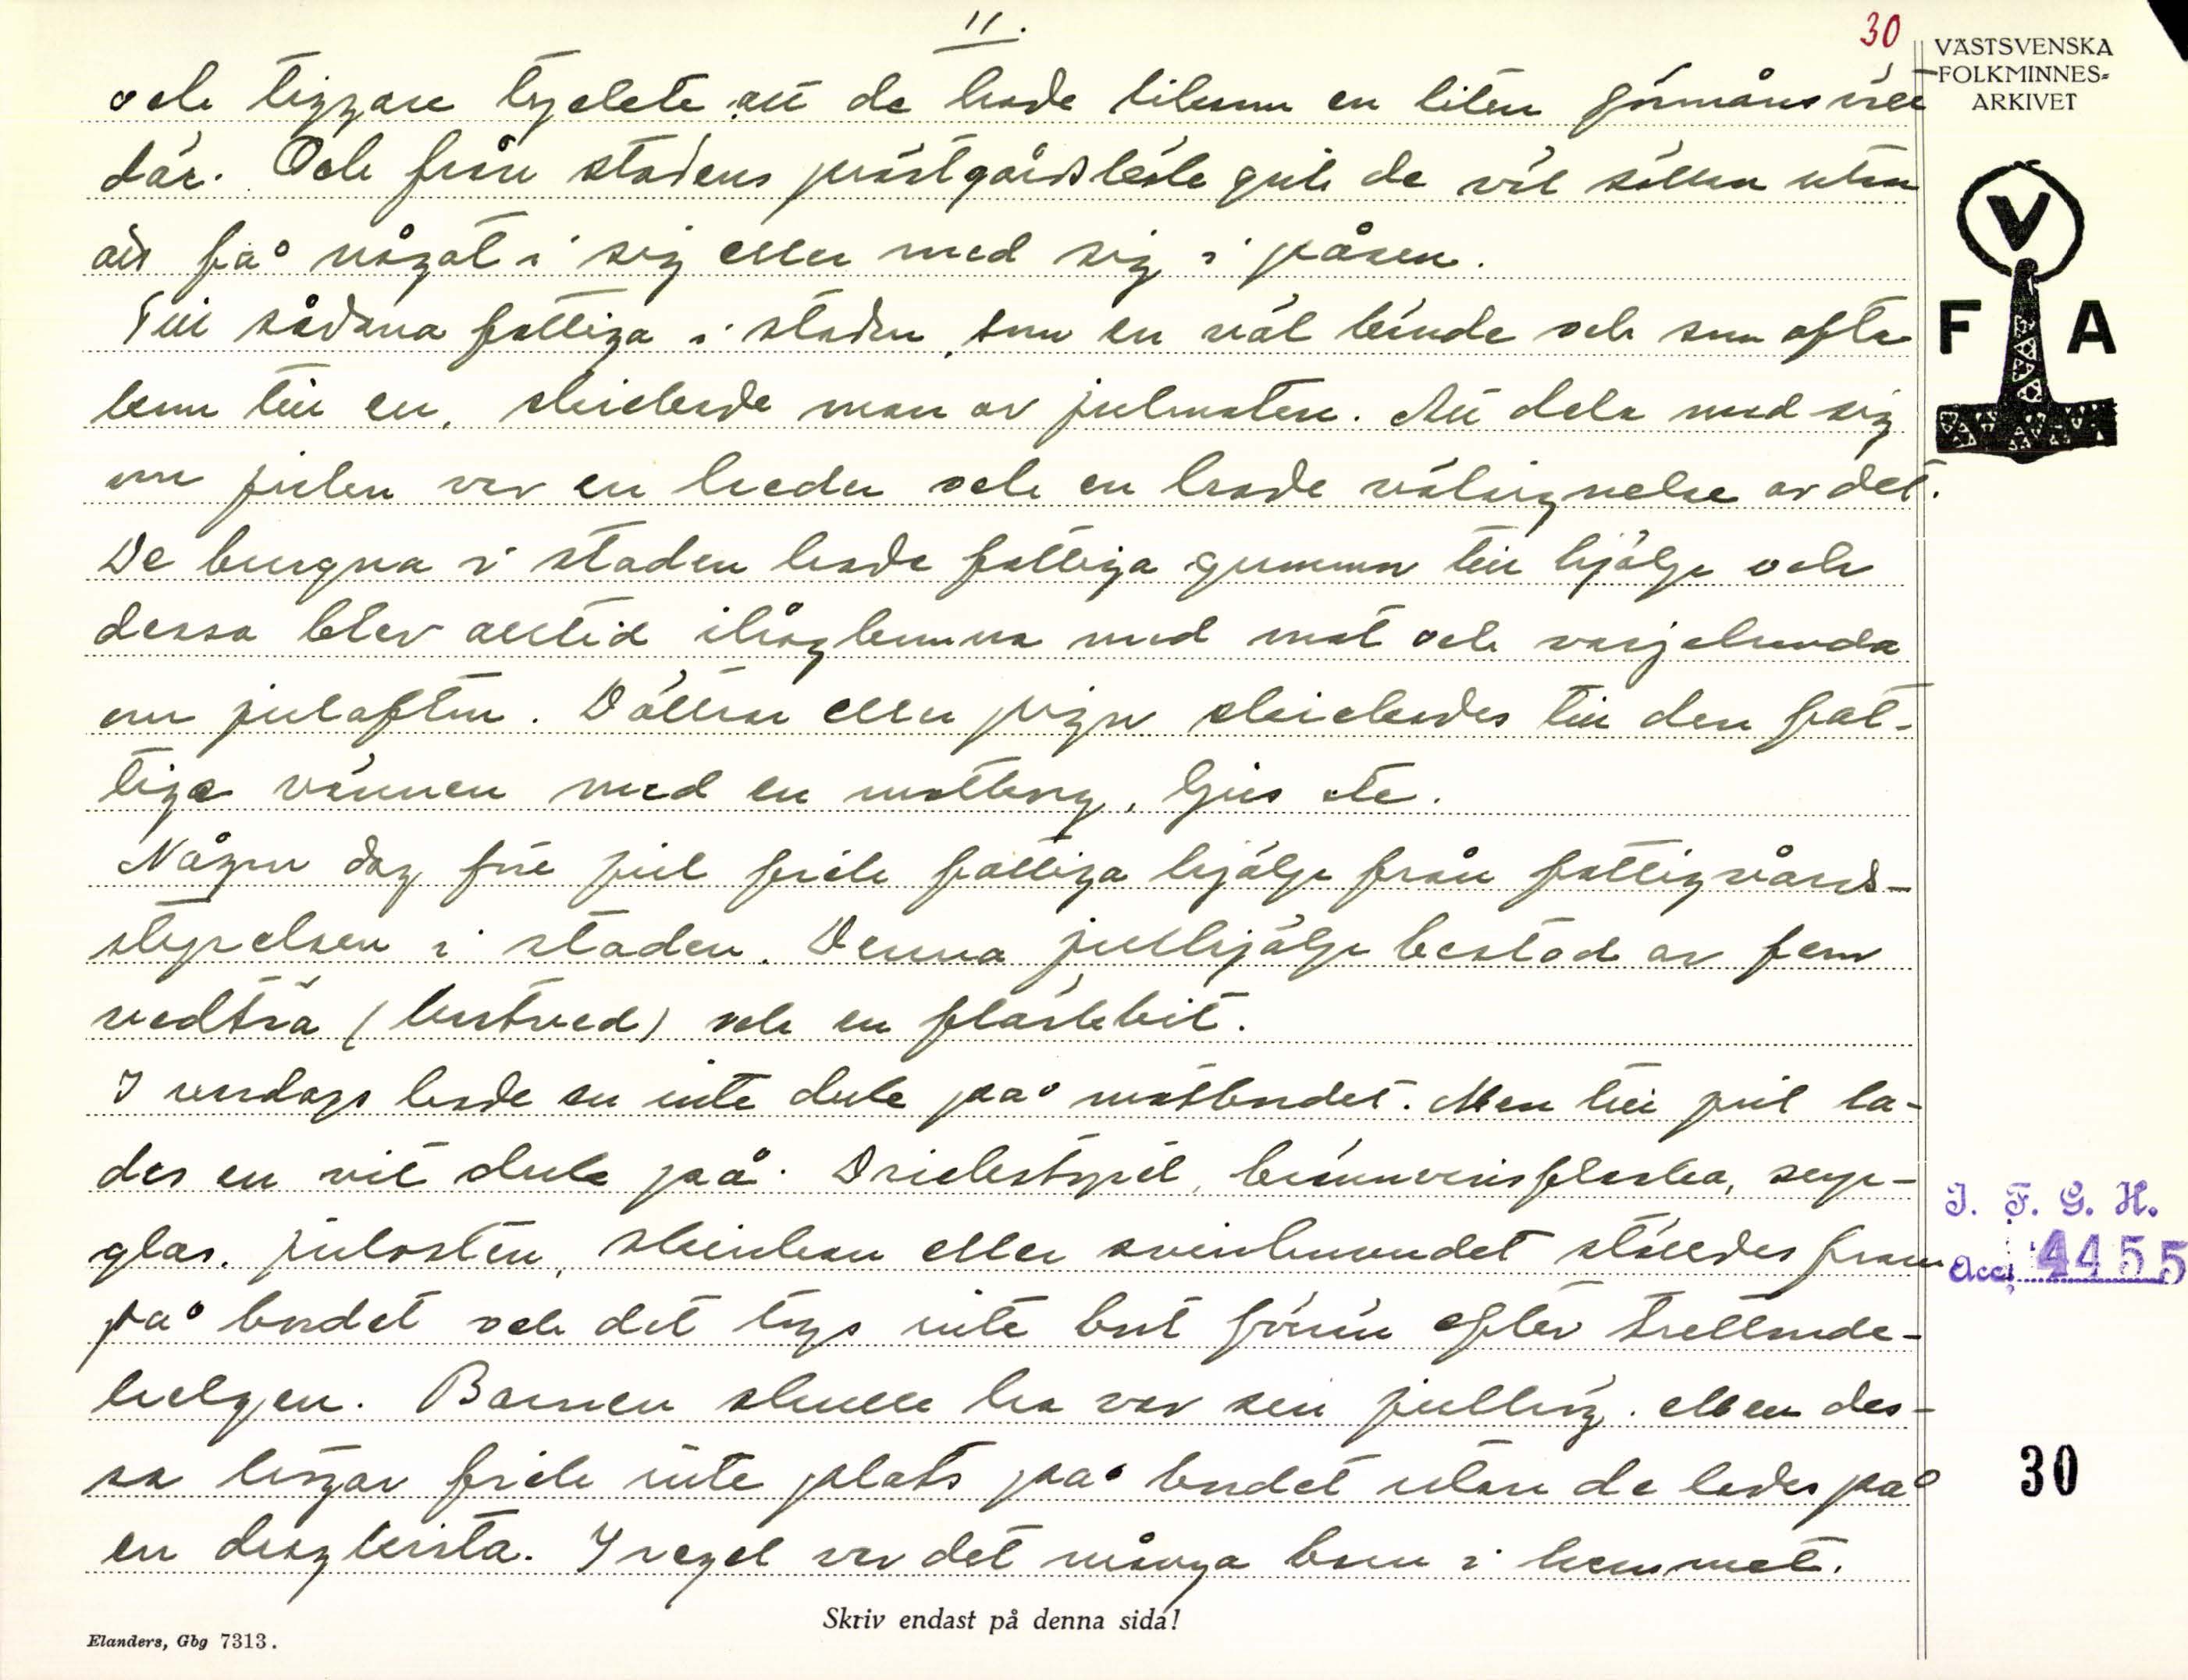 11.
30
VÄSTSVENSKA
FOLKMINNES-
ARKIVET
och tiggare tyckte att de hade liksom en liten förmånsrätt
där. Och från stadens prästgårdskök gick de väl sällan utan
att få något i sig eller med sig i påsen.
Till sådana fattiga i staden, som en väl kände och som ofta
kom till en, skickade man av julmaten. Att dela med sig
om julen var en heder och en hade välsignelse av det.
De burgna i staden hade fattiga gummor till hjälp och
dessa blev alltid ihågkomna med mat och varjehanda
om julafton. Dottern eller pigan skickades till den fat-
tiga vännen med en matkorg, ljus etc.
Någon dag före jul fick fattiga hjälp från fattigvårds-
styrelsen i staden. Denna julhjälp bestod av fem
vedträ (kastved) och en fläskbit.
I vardags hade en inte duk på matbordet. Men till jul la-
des en vit duk på. Drickstyret, brännvinsflaska, sup-
glas, julosten, skinkan eller svinhuvudet ställdes fram
på bordet och det togs inte bort förrän efter trettonde-
helgen. Barnen skulle ha var sin julhög. Men des-
sa högar fick inte plats på bordet utan de lades på
en dragkista. I regel var det många barn i hemmet.
V
F A
I. F. G. H.
Acc. 4455
30
Skriv endast på denna sida!
Elanders, Gbg 7313.